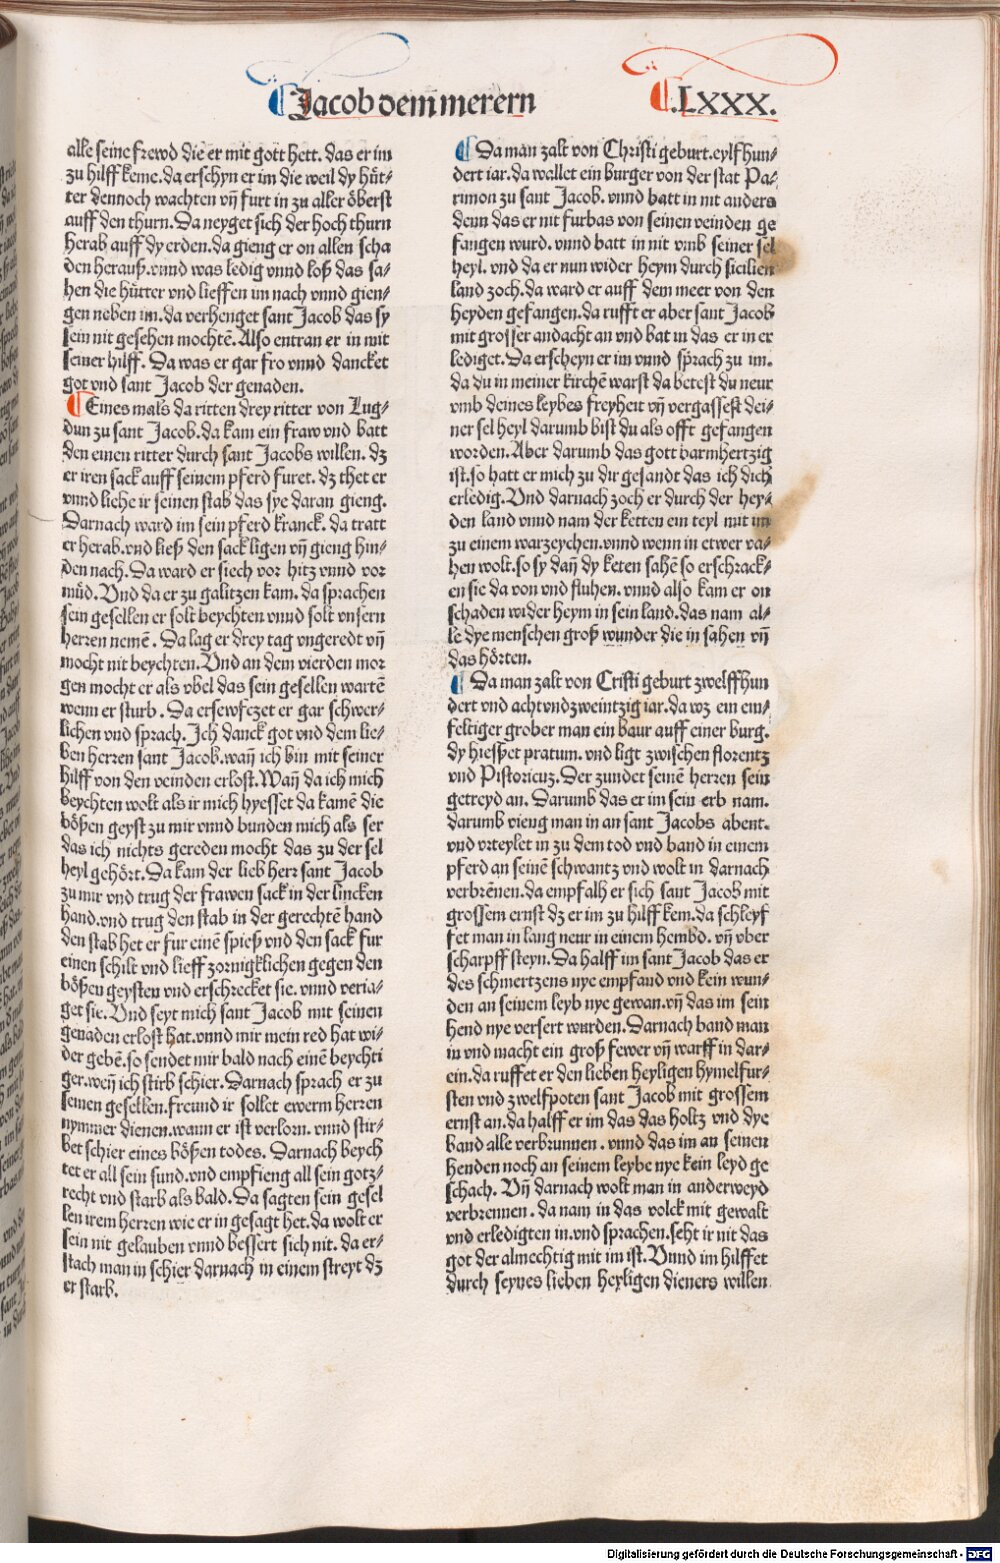 Jacob dem̄ merern
.LXXX.
alle seine frewd die er mit gott hett. das er im
zu hilff keme. da erschyn er im die weil dy hüt⸗
ter dennoch wachten vn̄ furt in zu aller öberst
auff den thurn. Da neyget sich der hoch thurn
herab auff dy erden. da gieng er on allen scha
den herauß. vnnd was ledig vnnd loß das sa⸗
hen die hütter vnd lieffen im nach vnnd gien⸗
gen neben im. da verhenget sant Jacob das sy
sein nit gesehen mochtē. Also entran er in mit
seiner hilff. Da was er gar fro vnnd dancket
got vnd sant Jacob der genaden.
Eines mals da ritten drey ritter von Lug⸗
dun zu sant Jacob. da kam ein fraw vnd batt
den einen ritter durch sant Jacobs willen. dz
er iren sack auff seinem pferd furet. dz thet er
vnnd liehe ir seinen stab das sye daran gieng.
Darnach ward im sein pferd kranck. da tratt
er herab. vnd ließ den sack ligen vn̄ gieng hin⸗
den nach. Da ward er siech vor hitz vnnd vor
müd. Vnd da er zu galitzen kam. da sprachen
sein gesellen er solt beychten vnnd solt vnsern
herren nemē. Da lag er drey tag vngeredt vn̄
mocht nit beychten. Vnd an dem vierden mor
gen mocht er als vbel das sein gesellen wartē
wenn er sturb. Da ersewfczet er gar schwer⸗
lichen vnd sprach. Ich danck got vnd dem lie⸗
ben herren sant Jacob. wan̄ ich bin mit seiner
hilff von den veinden erlost. Wan̄ da ich mich
beychten wolt als ir mich hyesset da kamē die
bößen geyst zu mir vnnd bunden mich als ser
das ich nichts gereden mocht das zu der sel
heyl gehört. Da kam der lieb herr sant Jacob
zu mir vnd trug der frawen sack in der lincken
hand. vnd trug den stab in der gerechtē hand
den stab het er fur einē spieß vnd den sack fur
einen schilt vnd lieff zornigklichen gegen den
bößen geysten vnd erschrecket sie. vnnd veria⸗
get sie. Vnd seyt mich sant Jacob mit seinen
genaden erlost hat. vnnd mir mein red hat wi⸗
der gebē. so sendet mir bald nach einē beychti
ger. wen̄ ich stirb schier. Darnach sprach er zu
seinen gesellen. freund ir sollet ewerm herren
nymmer dienen. wann er ist verlorn. vnnd stir⸗
bet schier eines bößen todes. Darnach beych
tet er all sein sund. vnd empfieng all sein gotz⸗
recht vnd starb als bald. Da sagten sein gesel
len irem herren wie er in gesagt het. da wolt er
sein nit gelauben vnnd bessert sich nit. da er⸗
stach man in schier darnach in einem streyt dz
er starb.
Da man zalt von Christi geburt. eylfhun⸗
dert iar. da wallet ein burger von der stat Pa⸗
rimon zu sant Jacob. vnnd batt in nit anders
denn das er nit furbas von seinen veinden ge
fangen wurd. vnnd batt in nit vmb seiner sel
heyl. vnd da er nun wider heym durch sicilien
land zoch. da ward er auff dem meer von den
heyden gefangen. da rufft er aber sant Jacob
mit grosser andacht an vnd bat in das er in er
lediget. Da erscheyn er im vnnd sprach zu im.
da du in meiner kirchē warst da betest du neur
vmb deines leybes freyheit vn̄ vergassest dei⸗
ner sel heyl darumb bist du als offt gefangen
worden. Aber darumb das gott barmhertzig
ist. so hatt er mich zu dir gesandt das ich dich
erledig. Vnd darnach zoch er durch der hey⸗
den land vnnd nam der ketten ein teyl mit im
zu einem warzeychen. vnnd wenn in etwer va⸗
hen wolt. so sy dan̄ dy keten sahē so erschrack⸗
en sie da von vnd fluhen. vnnd also kam er on
schaden wider heym in sein land. das nam al⸗
le dye menschen groß wunder die in sahen vn̄
das hörten.
Da man zalt von Cristi geburt zwelffhun
dert vnd achtvndzweintzig iar. da wz ein ein⸗
feltiger grober man ein baur auff einer burg.
dy hiesset pratum. vnd ligt zwischen florentz
vnd Pistoricuz. Der zundet seinē herren sein
getreyd an. Darumb das er im sein erb nam.
darumb vieng man in an sant Jacobs abent.
vnd vrteylet in zu dem tod vnd band in einem
pferd an seinē schwantz vnd wolt in darnach
verbrēnen. da empfalh er sich sant Jacob mit
grossem ernst dz er im zu hilff kem. da schleyf
fet man in lang neur in einem hembd. vn̄ vber
scharpff steyn. Da halff im sant Jacob das er
des schmertzens nye empfand vnd kein wun⸗
den an seinem leyb nye gewan. vn̄ das im sein
hend nye versert wurden. Darnach band man
in vnd macht ein groß fewer vn̄ warff in dar⸗
ein. da ruffet er den lieben heyligen hymelfur⸗
sten vnd zwelfpoten sant Jacob mit grossem
ernst an. da halff er im das das holtz vnd dye
band alle verbrunnen. vnnd das im an seinen
henden noch an seinem leybe nye kein leyd ge
schach. Vn̄ darnach wolt man in anderweyd
verbrennen. da nam in das volck mit gewalt
vnd erledigten in. vnd sprachen. seht ir nit das
got der almechtig mit im ist. Vnnd im hilffet
durch seynes lieben heyligen dieners willen
Digitalisierung gefördert durch die Deutsche Forschungsgemeinschaft - DFG